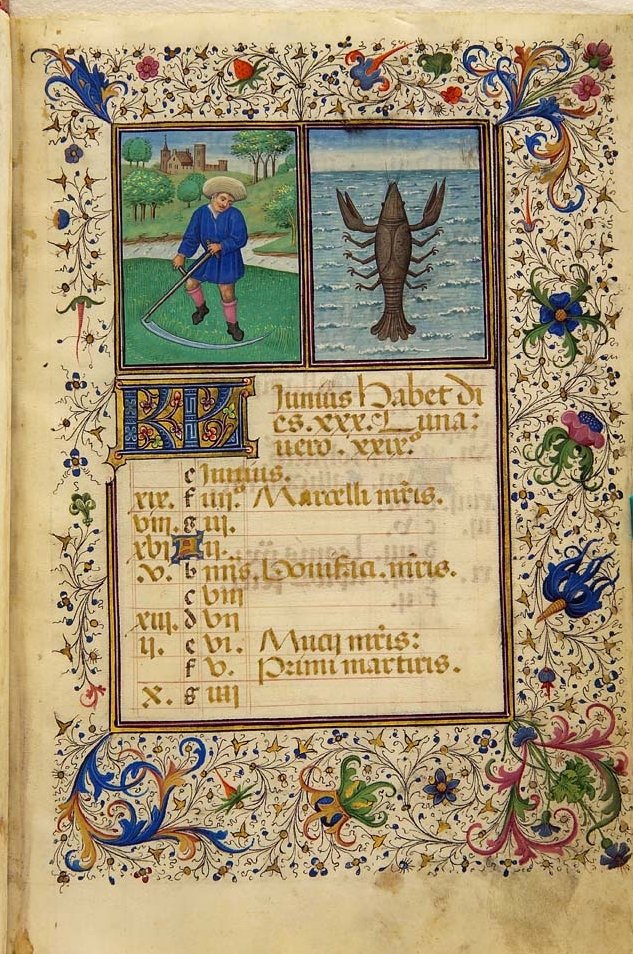 KL Junius habet di
es. xxx. Luna:
vero. xxix.
e Junius.
xix. f iiij. Marcelli mr̄is.
viij. g iij.
xvi A ij.
v. b nōs. Bonifacii. mr̄is.
c viij
xiij. d vij
ij. e vi. Mucij mr̄is:
f v. Primi martiris.
x. g iiij